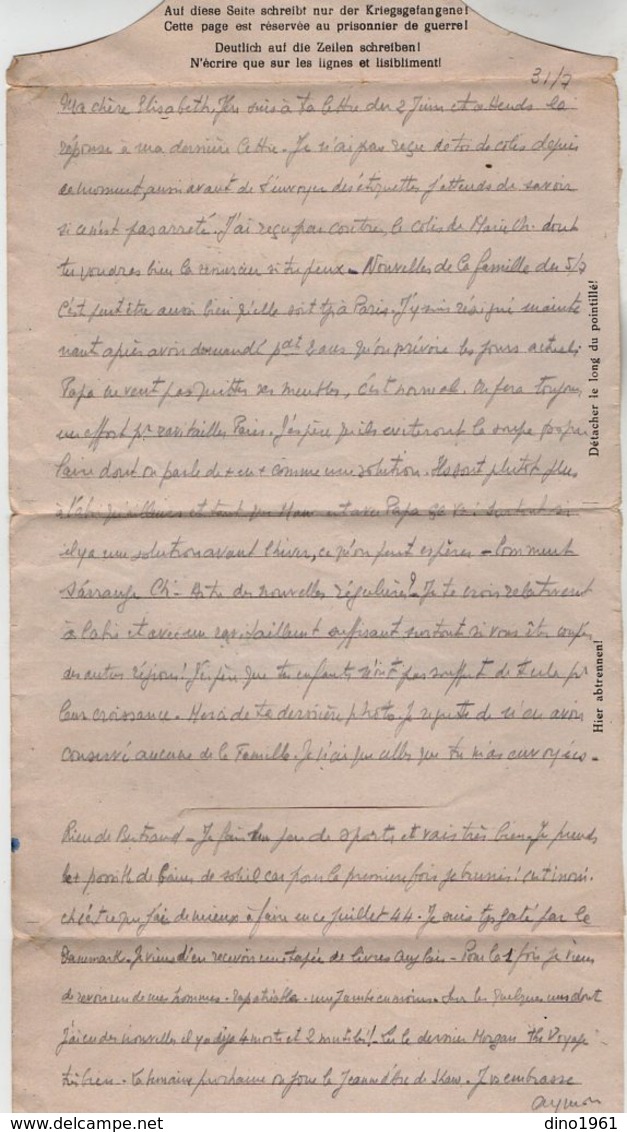 Auf diese Seite schreibt nur der Kriegsgefangene!
Cette page est réservée au prisonnier de guerre!
Deutlich auf die Zeilen schreiben!
N'écrire que sur les lignes et lisiblement!
31/7
Ma chère Elisabeth, J'en suis à ta lettre du 2 Juin et attends la
réponse à ma dernière lettre. Je n'ai pas reçu de toi de colis depuis
ce moment, aussi avant de t'envoyer des étiquettes j'attends de savoir
si ce n'est pas arrêté. J'ai reçu par contre le colis de Marie Ch. dont
tu voudras bien la remercier si tu peux - Nouvelles de la famille du 5/7
C'est peut être aussi bien qu'elle soit à Paris. J'y suis résigné mainte
nant après avoir demandé pdt 2 ans qu'on prévoie les jours actuels
Papa ne veut pas quitter ses meubles, c'est normal. On fera toujours
un effort pr ravitailler Paris. J'espère qu'ils éviteront la soupe popu
laire dont on parle de + en + comme une solution. Ils sont plutôt plus
à l'abri qu'ailleurs et tant que Mam est avec Papa ça va! surtout si
il y a une solution avant l'hiver, ce qu'on peut espérer - Comment
s'arrange Ch - As tu des nouvelles régulières? - Je te crois relativement
à l'abri et avec un ravitaillement suffisant surtout si vous êtes coupés
des autres régions! J'espère que tes enfants n'ont pas souffert de pr
leur croissance - Merci de ta dernière photo. Je regrette de n'en avoir
conservé aucune de la Famille. Je n'ai que celles que tu m'as envoyées -
Rien de Bertrand - Je fais un peu de sports et vais très bien - Je prends
le + possible de bains de soleil car pour la première fois je brunis!
c'est ce que j'ai de mieux à faire en ce juillet 44. Je suis gâté par le
Danemark. Je viens d'en recevoir une tapée de livres anglais - Pour la 1 fois je viens
de revoir un de mes hommes - rapatriable - une jambe en moins. Sur les quelques uns dont
j'ai eu des nouvelles il y a déjà 4 morts et 2 mutilés! - Lu le dernier Morgan The Voyage
très bien - La semaine prochaine on joue le Jeanne d'Arc de Shaw - Je vs embrasse
Aymon
Détacher le long du pointillé!
Hier abtrennen!
Copyright : dino1961